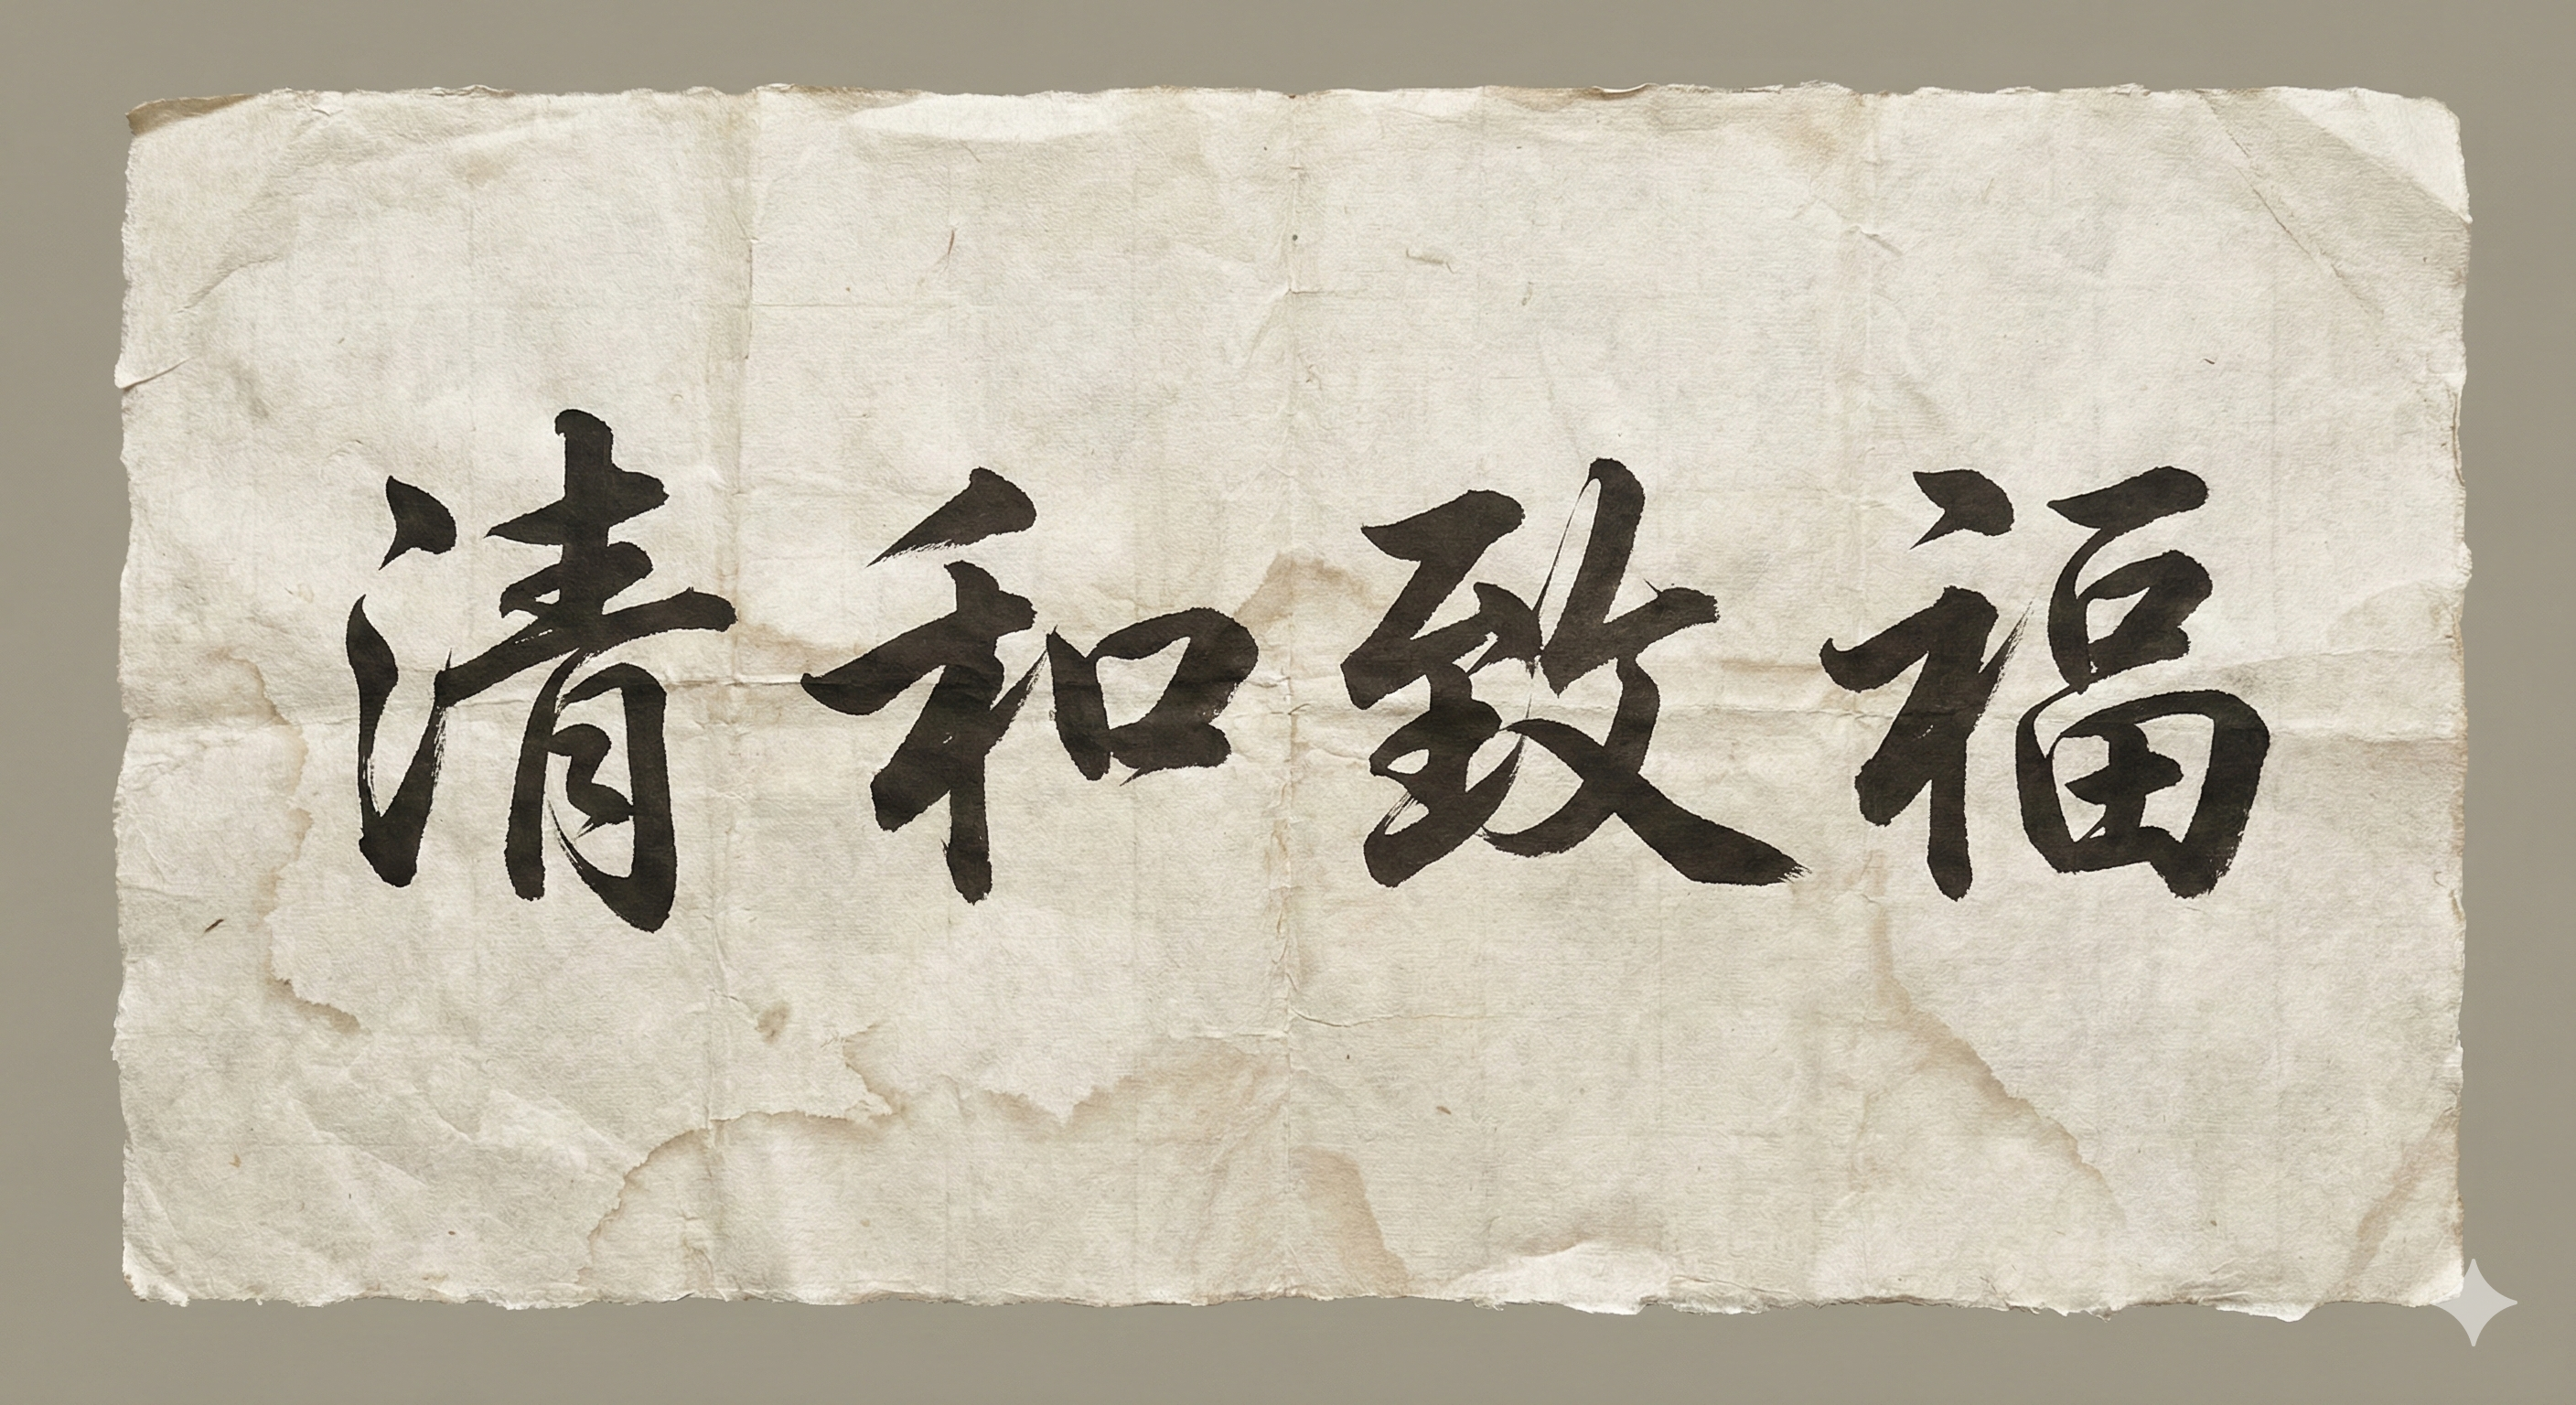 清和致福